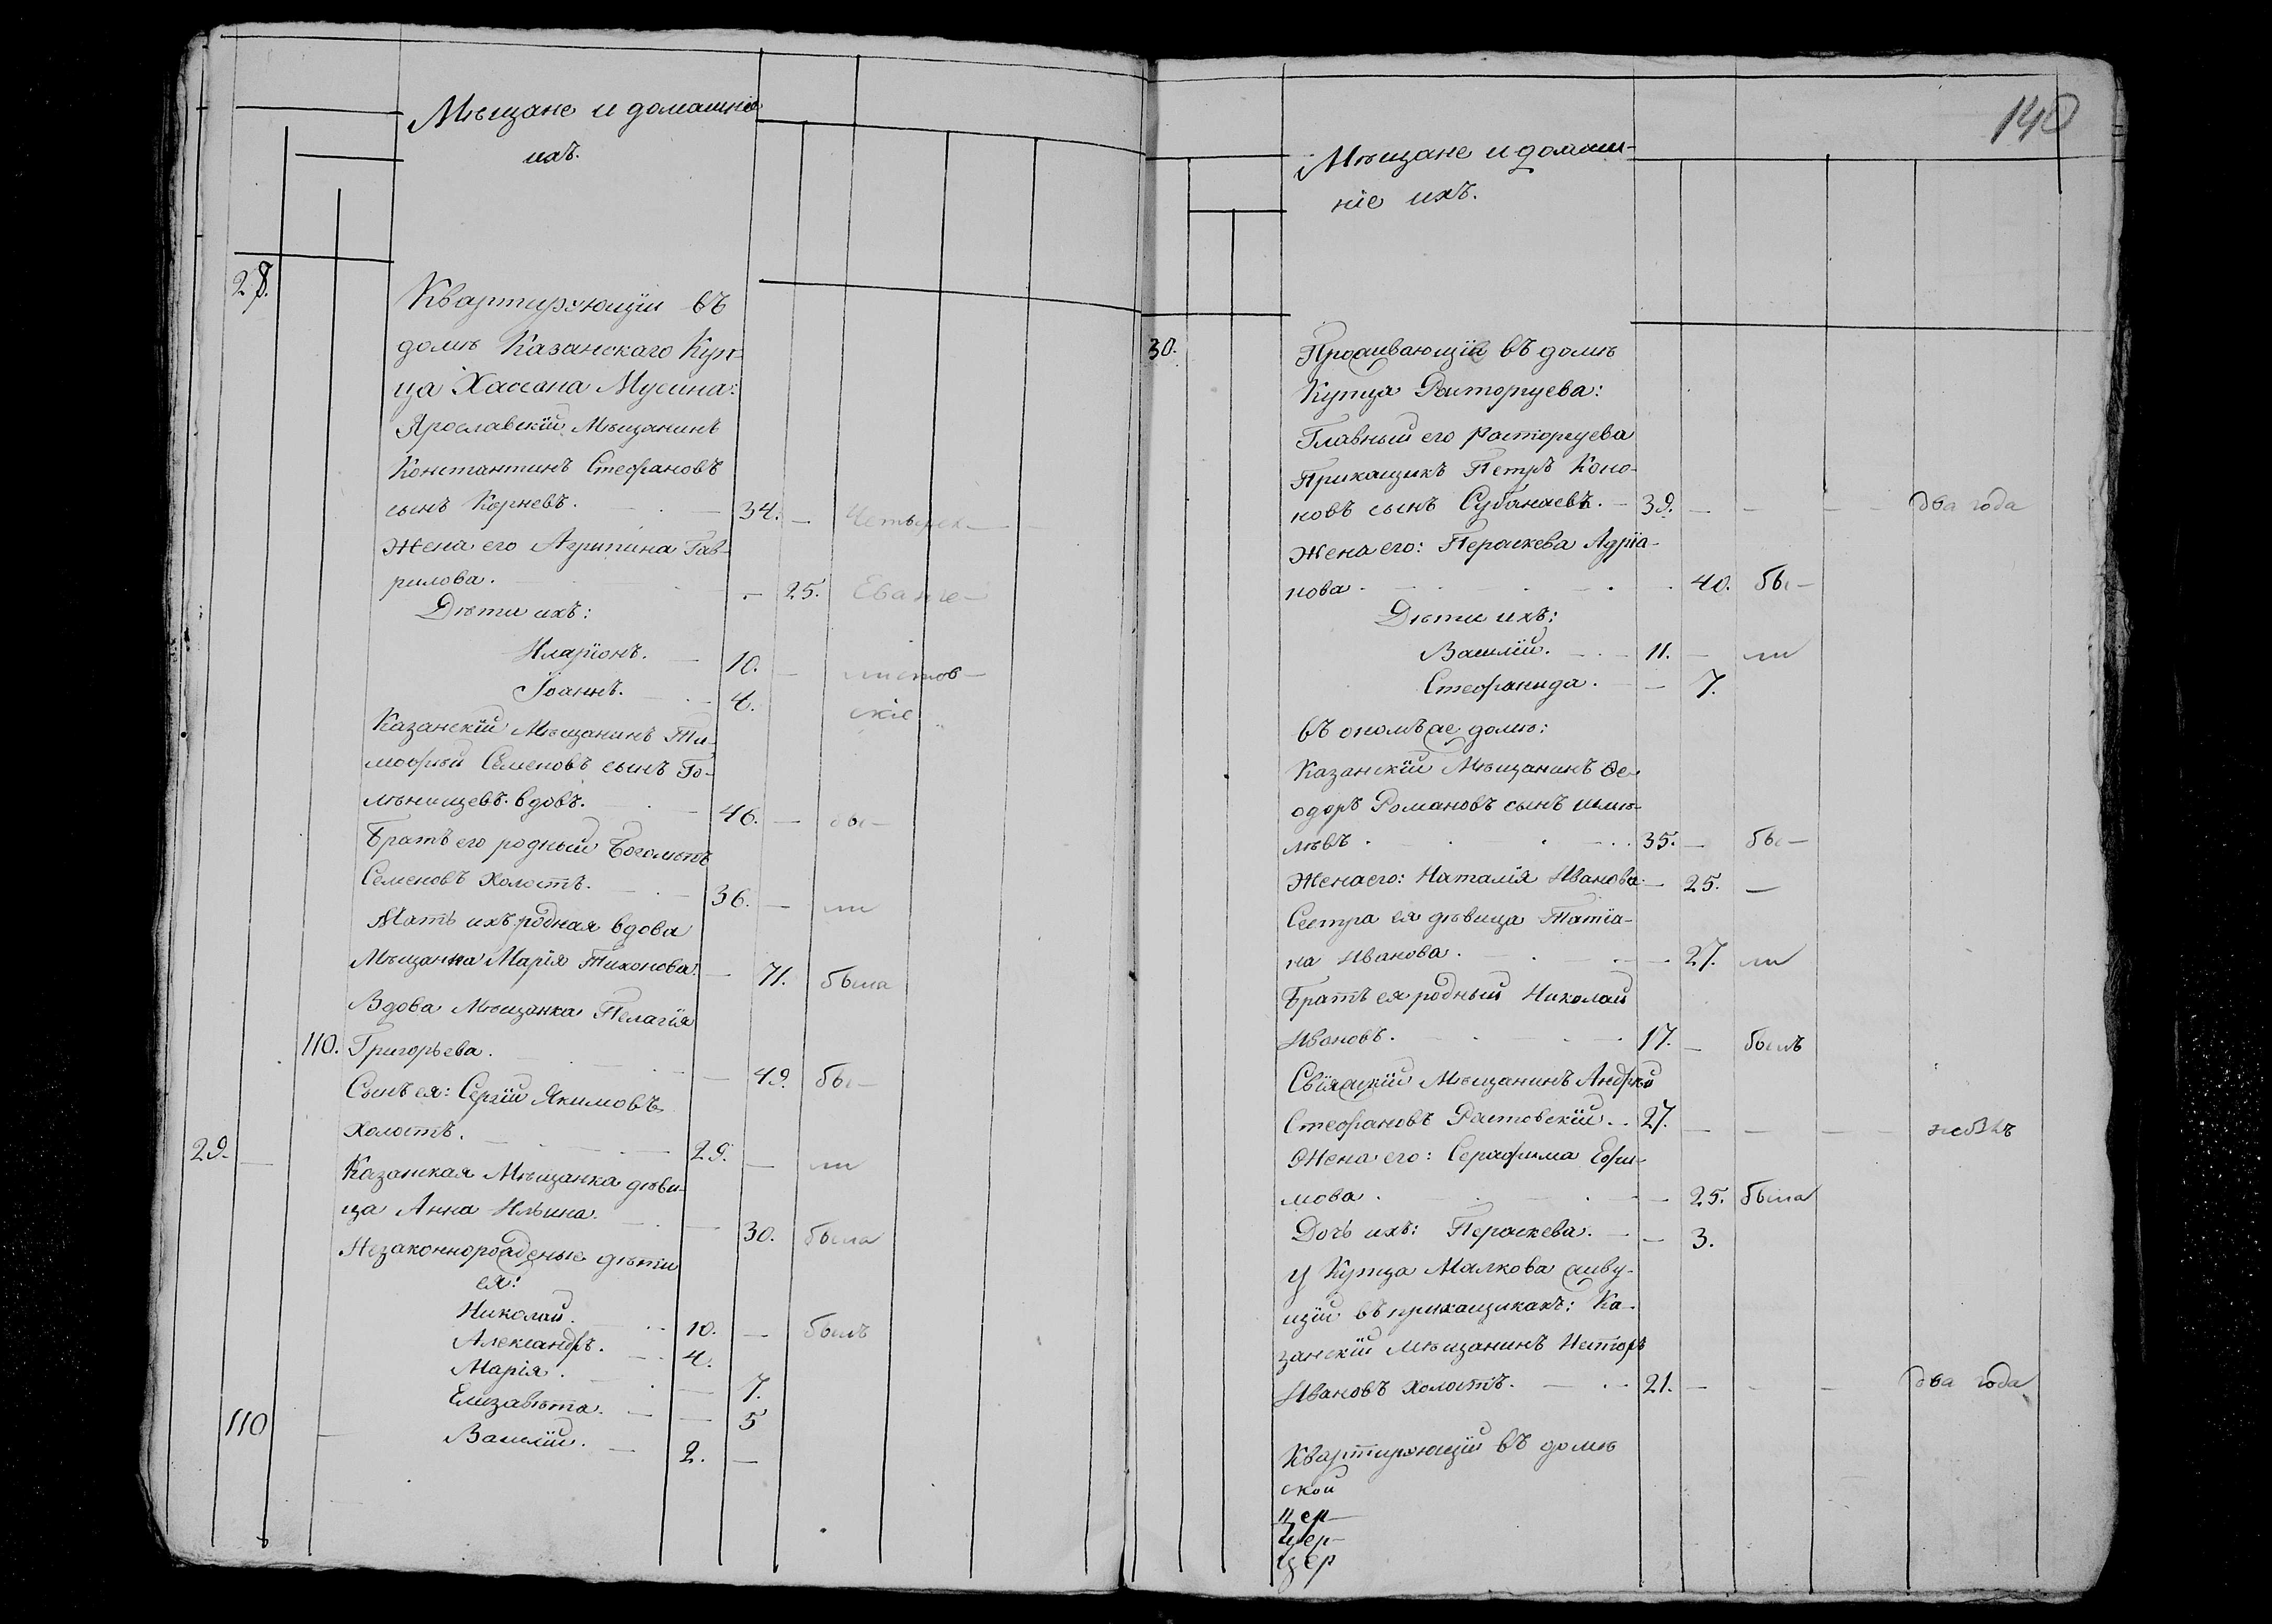 Мѣщане и домашніе
ихъ.
28.
Квартирующіи въ
домѣ Казанскаго Куп-
ца Хассана Мусина:
Ярославскій Мѣщанинъ
Константинъ Стефановъ
сынъ Корневъ. 34. — Четырех-
Жена его Агрипина Гав-
рилова. — 25. Еванге-
Дѣти ихъ:
Иларіонъ. — 10. — листов-
Іоаннъ. — 4. скіе
Казанскій Мѣщанинъ Ти-
мофѣй Семеновъ сынъ Го-
лѣнищевъ вдовъ. 46. — бы-
Братъ его родный Боголѣпъ
Семеновъ Холостъ. 36. — ли
Мать ихъ родная вдова
Мѣщанка Марія Тихонова. — 71. была
Вдова Мѣщанка Пелагія
110. Григорьева. — 49. бы-
Сынъ ея: Сергій Якимовъ
Холостъ. 29. — ли
29. Казанская Мѣщанка дѣви-
ца Анна Ильина. — 30. была
Незаконнорожденые дѣти
ея:
Николай. 10. — былъ
Александръ. 4.
Марія. — 7.
Елизавета. — 5
110 Василій. — 2. —
140
Мѣщане и домаш-
ніе ихъ.
30. Проживающіе въ домѣ
Купца Расторгуева:
Главный его Расторгуева
Прикащикъ Петръ Коно-
новъ сынъ 39. — — — два года
Жена его: Параскева Адріа-
нова. 40. бы-
Дѣти ихъ:
Василій. 11. — ли
Стефанида. — 7.
въ ономъ же домѣ:
Казанскій Мѣщанинъ Ѳе-
одоръ Романовъ сынъ
35. — бы-
Жена его: Наталія Иванова. — 25. —
Сестра ея дѣвица Татіа-
на Иванова. — 27. ли
Братъ ея родный Николай
Ивановъ. 17. — былъ
Свіяжскій Мѣщанинъ Андрей
Стефановъ Растовскій. 27. — — — небылъ
Жена его: Серафима Ефи-
мова. — 25. была
Дочь ихъ: Параскева. — 3.
У Купца Малкова живу-
щій въ прикащикахъ: Ка-
занскій Мѣщанинъ Несторъ
Ивановъ Холостъ. 21. — — два года
Квартирующіи въ домѣ
ской
цер-
цер-
цер